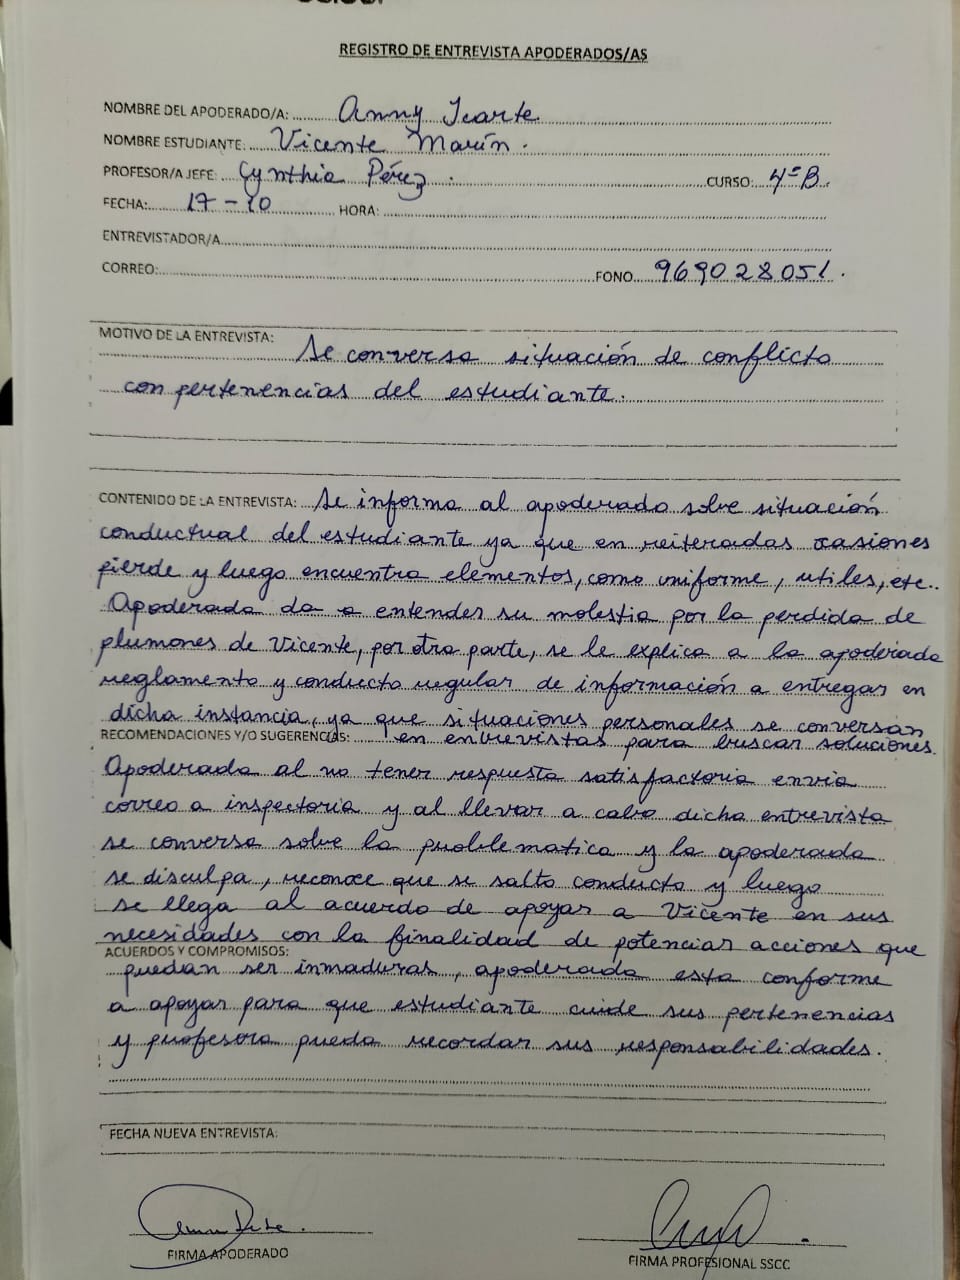 REGISTRO DE ENTREVISTA APODERADOS/AS
NOMBRE DEL APODERADO/A: Anny Iearte
NOMBRE ESTUDIANTE: Vicente Marín.
PROFESOR/A JEFE: Cynthia Pérez. CURSO: 4º B.
FECHA: 17-10 HORA:
ENTREVISTADOR/A
CORREO: FONO 969028051.
MOTIVO DE LA ENTREVISTA: Se conversa situación de conflicto
con pertenencias del estudiante.
CONTENIDO DE LA ENTREVISTA: Se informa al apoderado sobre situación
conductual del estudiante ya que en reiteradas ocasiones
pierde y luego encuentra elementos, como uniforme, utiles, etc..
Apoderada da a entender su molestia por la perdida de
plumones de Vicente, por otra parte, se le explica a la apoderada
reglamento y conducto regular de información a entregar en
dicha instancia, ya que situaciones personales se conversan
RECOMENDACIONES Y/O SUGERENCIAS: en entrevistas para buscar soluciones.
Apoderada al no tener respuesta satisfactoria envia
correo a inspectoria y al llevar a cabo dicha entrevista
se conversa sobre la problematica y la apoderada
se disculpa, reconoce que se salto conducto y luego
se llega al acuerdo de apoyar a Vicente en sus
necesidades con la finalidad de potenciar acciones que
ACUERDOS Y COMPROMISOS:
puedan ser inmaduras, apoderada esta conforme
a apoyar para que estudiante cuide sus pertenencias
y profesora pueda recordar sus responsabilidades.
FECHA NUEVA ENTREVISTA:
FIRMA APODERADO
FIRMA PROFESIONAL SSCC